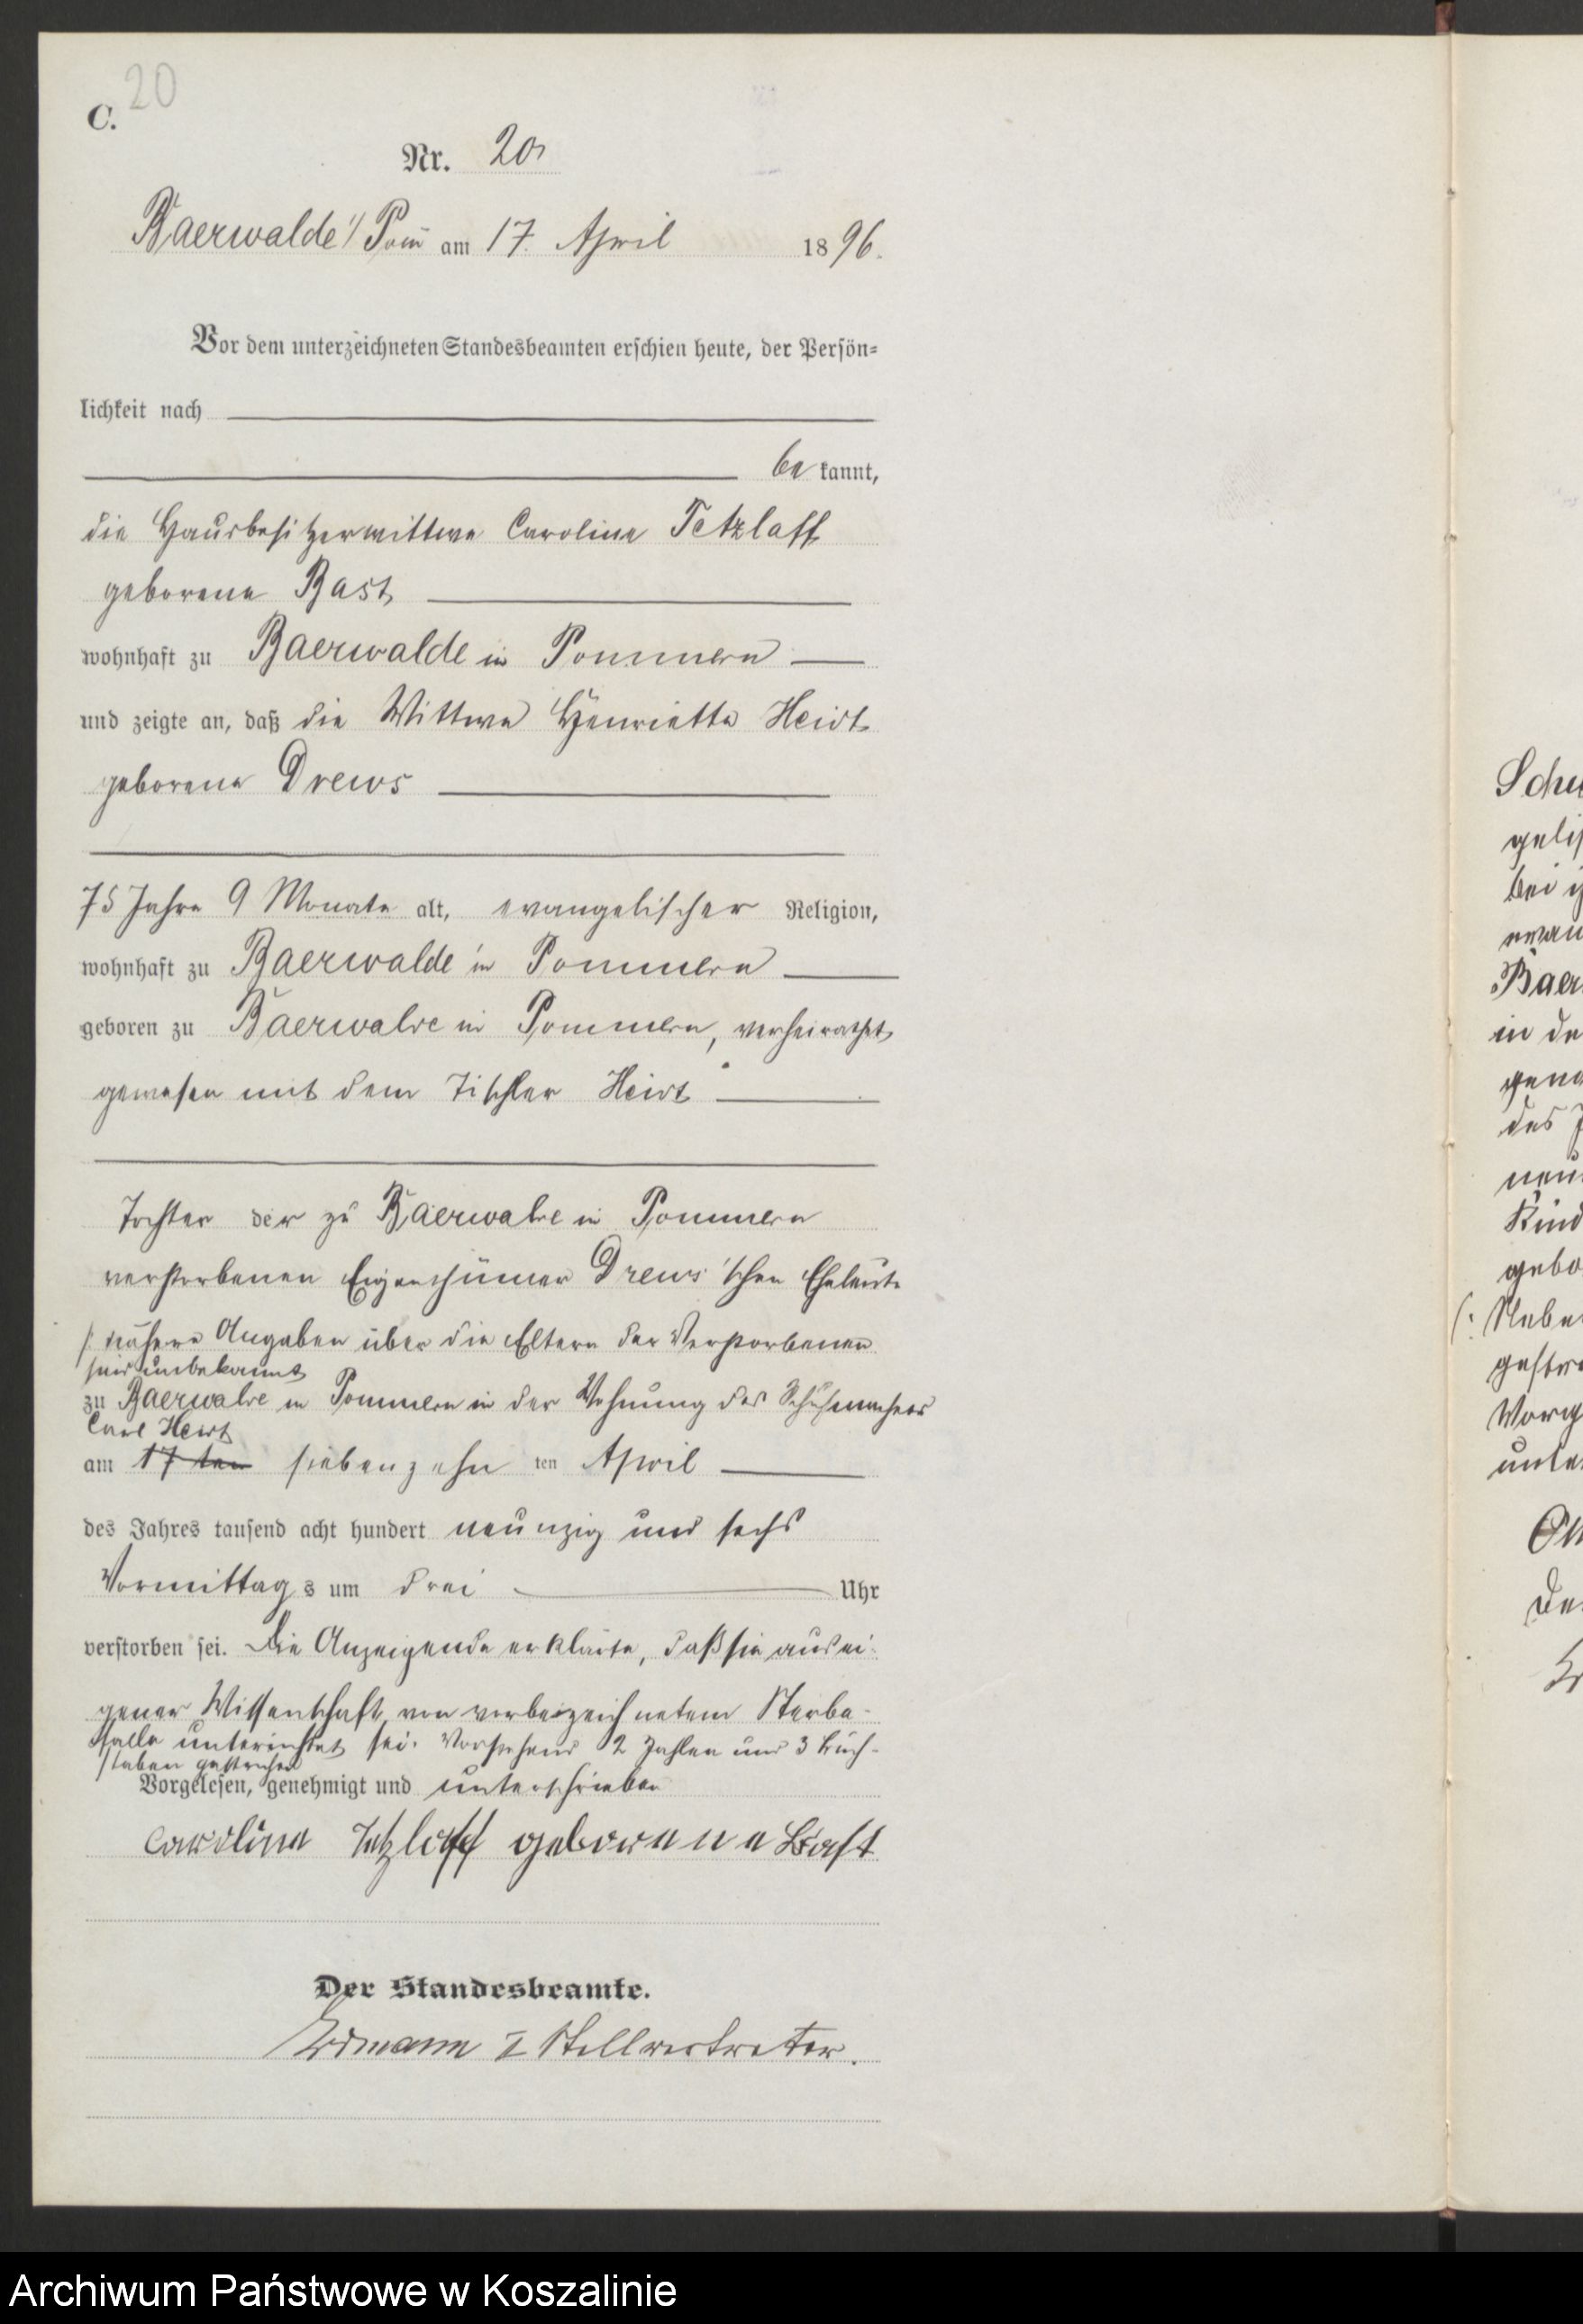 20
C.
Nr. 20
Baerwalde i/ Pom am 17. April 1896.
Vor dem unterzeichneten Standesbeamten erschien heute, der Persön-
lichkeit nach
be kannt,
die Hausbesitzerwittwe Caroline Tetzlaff
geborene Bast
wohnhaft zu Baerwalde in Pommern
und zeigte an, daß die Wittwe Henriette Heidt
geborene Drews
75 Jahre 9 Monate alt, evangelischer Religion,
wohnhaft zu Baerwalde in Pommern
geboren zu Baerwalde in Pommern, verheirathet
gewesen mit dem Tischler Heidt
Tochter der zu Baerwalde in Pommern
verstorbenen Eigenthümer Drews'schen Eheleute
/: nähere Angaben über die Eltern der Verstorbenen
sind unbekannt
zu Baerwalde in Pommern in der Wohnung des Schuhmachers
Carl Heidt
am 17 ten siebenzehn ten April
des Jahres tausend acht hundert neunzig und sechs
Vormittags um drei Uhr
verstorben sei. Die Anzeigende erklärte, daß sie aus ei-
gener Wissenschaft von vorbezeichnetem Sterbe-
falle unterrichtet sei. Vorstehend 2 Zahlen und 3 Buch-
staben gestrichen
Vorgelesen, genehmigt und unterschrieben
Caroline Tetzlaff geborene Bast
Der Standesbeamte.
Erdmann I Stellvertreter.
Schu
geli
bei
evan
Baer
in de
gena
des
neun
Kind
gebo
(: Nebe
gestr
Vorg
unte
De
Archiwum Państwowe w Koszalinie